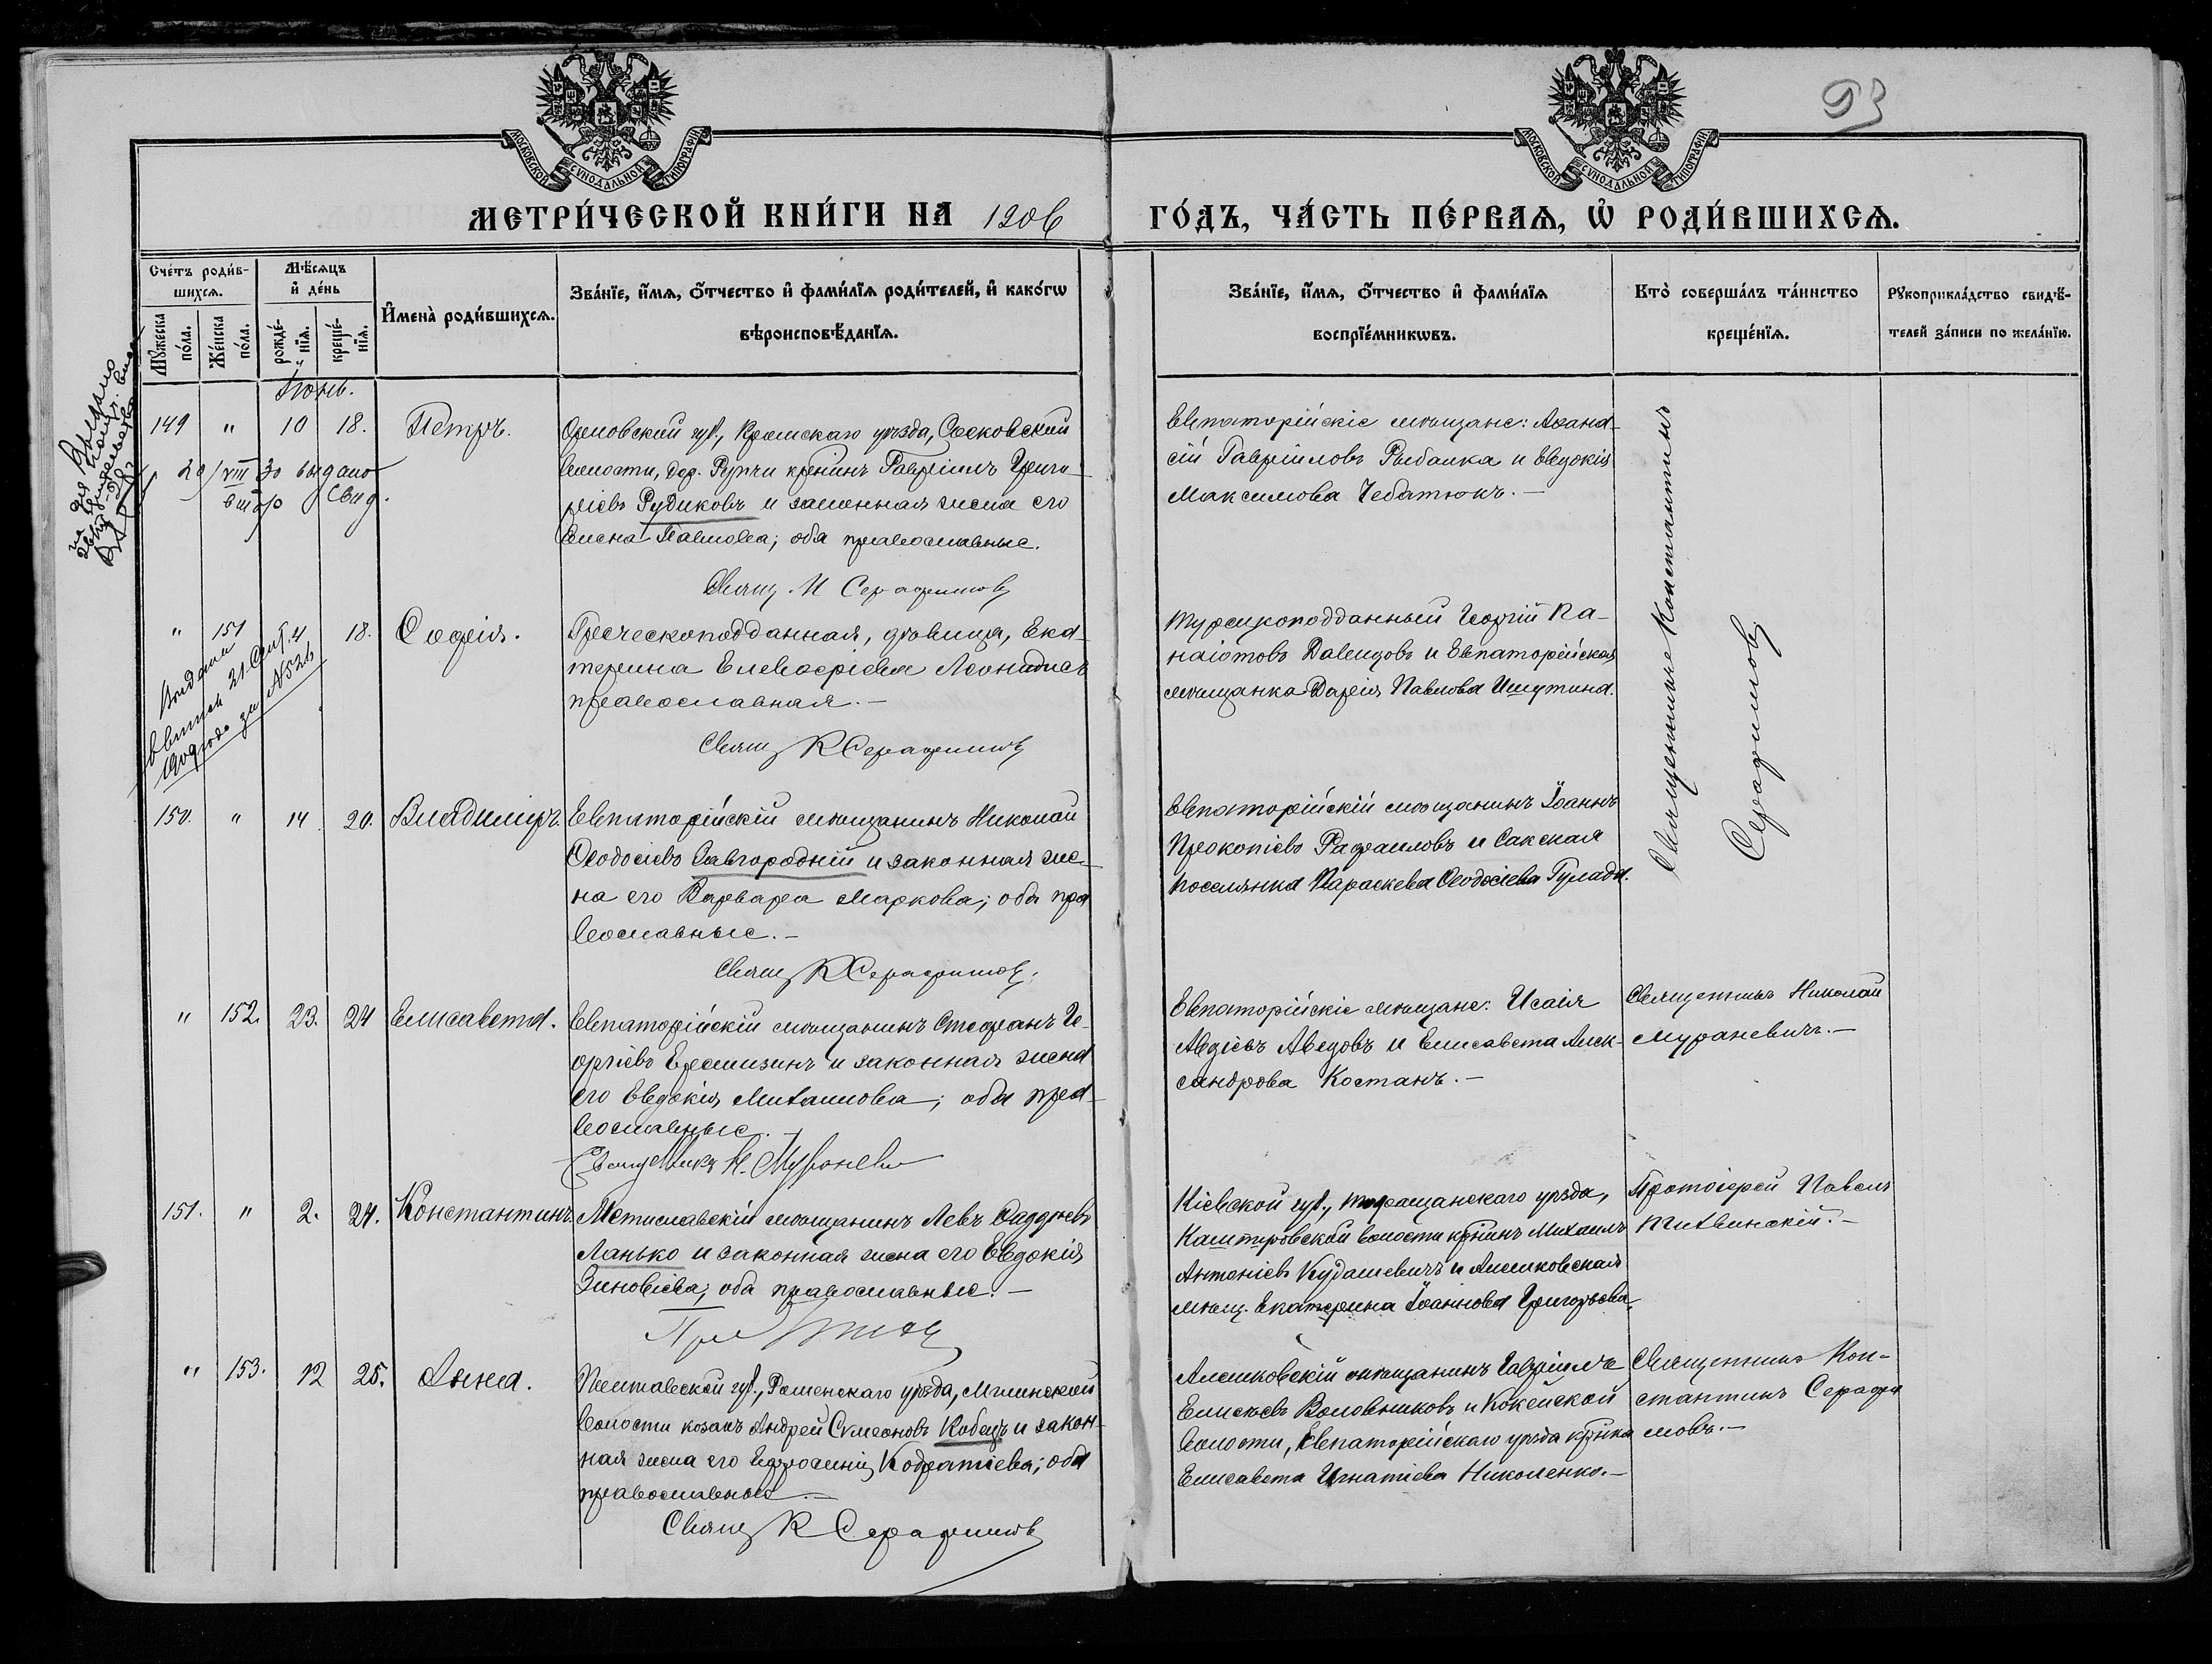 МОСКОВСКОЙ СѴНОДАЛЬНОЙ ТИПОГРАФІИ
МОСКОВСКОЙ СѴНОДАЛЬНОЙ ТИПОГРАФІИ
93
МЕТРИ́ЧЕСКОЙ КНИ́ГИ НА 1906 ГО́ДЪ, ЧА́СТЬ ПЕ́РВАѦ, Ѡ РОДИ́ВШИХСѦ.
Сче́тъ роди́в-
шихсѧ.
Мꙋ́жеска
по́ла.
Же́нска
по́ла.
Мѣ́сѧцъ
и де́нь
рожде́-
нїѧ.
креще́-
нїѧ.
И҆мена̀ роди́вшихсѧ.
Зва́нїе, и҆́мѧ, ѻ҆́тчество и҆ фами́лїѧ роди́телей, и҆ како́гѡ
вѣроисповѣ́данїѧ.
Зва́нїе, и҆́мѧ, ѻ҆́тчество и҆ фами́лїѧ
воспрїе́мникѡвъ.
Кто̀ соверша́лъ та́инство
креще́нїѧ.
Рꙋкоприкла́дство свидѣ́-
телей за́писи по жела́нїю.
Іюнь.
149 " 10 18. Петръ.
Орловской губ., Кромскаго уѣзда, Сосковской
волости, дер. Рупчи кр҃нинъ Гавріилъ Григо-
ріевъ Рудиковъ и законная жена его
Елена Павлова; оба православные.
Свящ. К Серафимовъ
Евпаторійскіе мѣщане: Аѳана-
сій Гавріиловъ Рыбалка и Евдокія
Максимова Чебатюкъ.—
Священникъ Константинъ
Серафимовъ
29/VIII 30 выдано
свид.
" 151 4 18. Софія.
Выдана
выпись 21 Сент.
года за №526
Греческоподданная, дѣвица, Ека-
терина Елевѳеріева Леонидисъ
православная.—
Свящ К Серафимовъ
Турецкоподданный Георгій Па-
наіотовъ Давидовъ и Евпаторійская
мѣщанка Дарія Павлова Ишутина.
150. " 14 20. Владиміръ.
Евпаторійскій мѣщанинъ Николай
Ѳеодосіевъ Завгородній и законная же-
на его Варвара Маркова; оба пра
вославные.—
Свящ К Серафимовъ.
Евпаторійскій мѣщанинъ Іоаннъ
Прокопіевъ Рафаиловъ и Сакская
поселянка Параскева Ѳеодосіева Гулада.
" 152. 23. 24 Елисавета.
Евпаторійскій мѣщанинъ Стефанъ Ге-
оргіевъ Еремизинъ и законная жена
его Евдокія Михаилова; оба пра-
вославные.—
Священникъ Н. Мураневи
Евпаторійскіе мѣщане: Исаія
Авдіевъ Аведовъ и Елисавета Алек-
сандрова Костанъ.—
Священникъ Николай
Мураневичъ.—
151. " 2. 24. Константинъ.
Мстиславскій мѣщанинъ Левъ Ѳаддѣевъ
Ланько и законная жена его Евдокія
Зиновіева; оба православные.—
Кіевской губ., Таращанскаго уѣзда,
волости кр҃нинъ Михаилъ
Антоніевъ Кудашевичъ и Алешковская
мѣщ. Екатерина Іоаннова Григорьева.
Протоіерей Павелъ
Тихвинскій.—
" 153. 12 25. Анна.
Полтавской губ., Роменскаго уѣзда, Глинской
волости козакъ Андрей Сѵмеоновъ Кобецъ и закон-
ная жена его Евфросинія Кодратіева; оба
православные.—
Свящ К Серафимовъ
Алешковскій мѣщанинъ Гавріилъ
Елисѣевъ Воловниковъ и Кокейской
волости, Евпаторійскаго уѣзда кр҃нка
Елисавета Игнатіева Николенко.—
Священникъ Кон-
стантинъ Серафи
мовъ.—